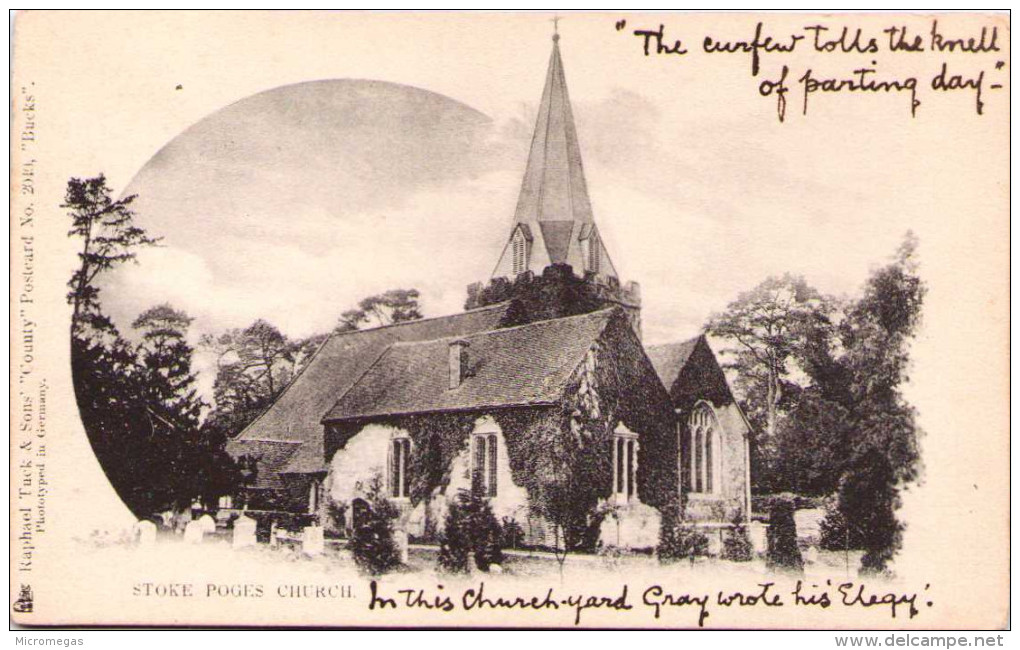 "The curfew tolls the knell
of parting day"-
Raphael Tuck & Sons' "County" Postcard No. 2040, "Bucks".
Phototyped in Germany.
STOKE POGES CHURCH.
In this Church-yard Gray wrote his 'Elegy'.
Micromegas
www.delcampe.net